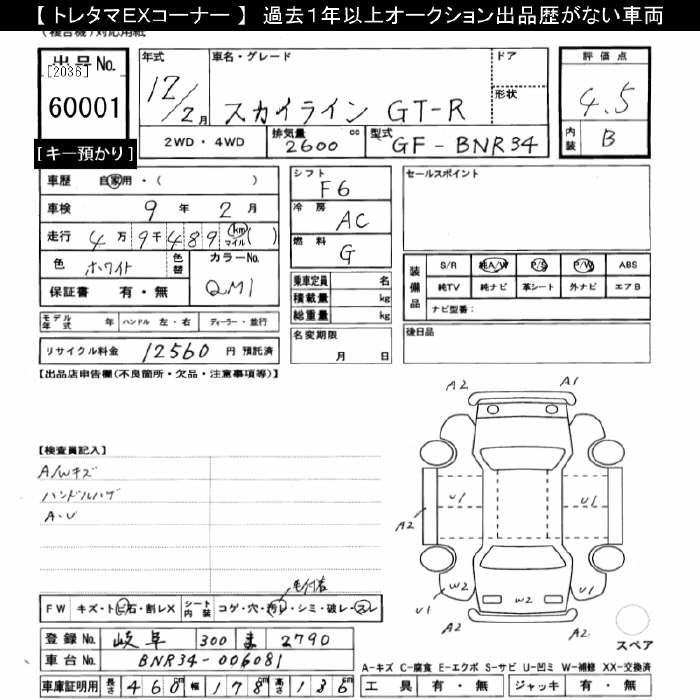 【 トレタマEXコーナー 】 過去1年以上オークション出品歴がない車両
出品No.
[2036]
60001
[キー預かり]
年式
12/2月
車名・グレード
スカイライン GT-R
ドア
形状
2WD・4WD
排気量 2600 cc
型式 GF-BNR34
評価点
4.5
内装 B
車歴 自家用・( )
車検 9年 2月
走行 4万9千489 km マイル ( )
色 ホワイト 色替
カラーNo. QM1
保証書 有・無
シフト F6
冷房 AC
燃料 G
乗車定員 名
積載量 kg
総重量 kg
名変期限
月 日
セールスポイント
装備品
S/R 純A/W P/S P/W ABS
純TV 純ナビ 革シート 外ナビ エアB
ナビ型番:
後日品
モデル年式 年 ハンドル 左・右 ディーラー・並行
リサイクル料金 12560 円 預託済
【出品店申告欄(不良箇所・欠品・注意事項等)】
【検査員記入】
A/Wキズ
ハンドルハゲ
A・U
A2
A1
U1
U1
A2
A2
W2
W2
U1
U1
A2
A2
スペア
FW キズ・トビ石・割レX シート内装 コゲ・穴・汚レ・シミ・破レ・スレ
登録No. 岐阜 300 ま 2790
車台No. BNR34-006081
車庫証明用 長さ 460cm 幅 178cm 高さ 136cm
A-キズ C-腐食 E-エクボ S-サビ U-凹ミ W-補修 XX-交換済
工具 有・無 ジャッキ 有・無